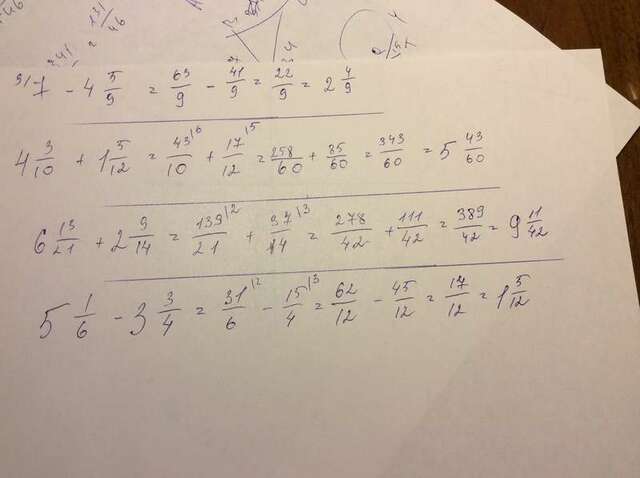 131/46
= 
3) 7 - 4 5/9 = 63/9 - 41/9 = 22/9 = 2 4/9
4 3/10 + 1 5/12 = 43/10 |6 + 17/12 |5 = 258/60 + 85/60 = 343/60 = 5 43/60
6 13/21 + 2 9/14 = 139/21 |2 + 37/14 |3 = 278/42 + 111/42 = 389/42 = 9 11/42
5 1/6 - 3 3/4 = 31/6 |2 - 15/4 |3 = 62/12 - 45/12 = 17/12 = 1 5/12